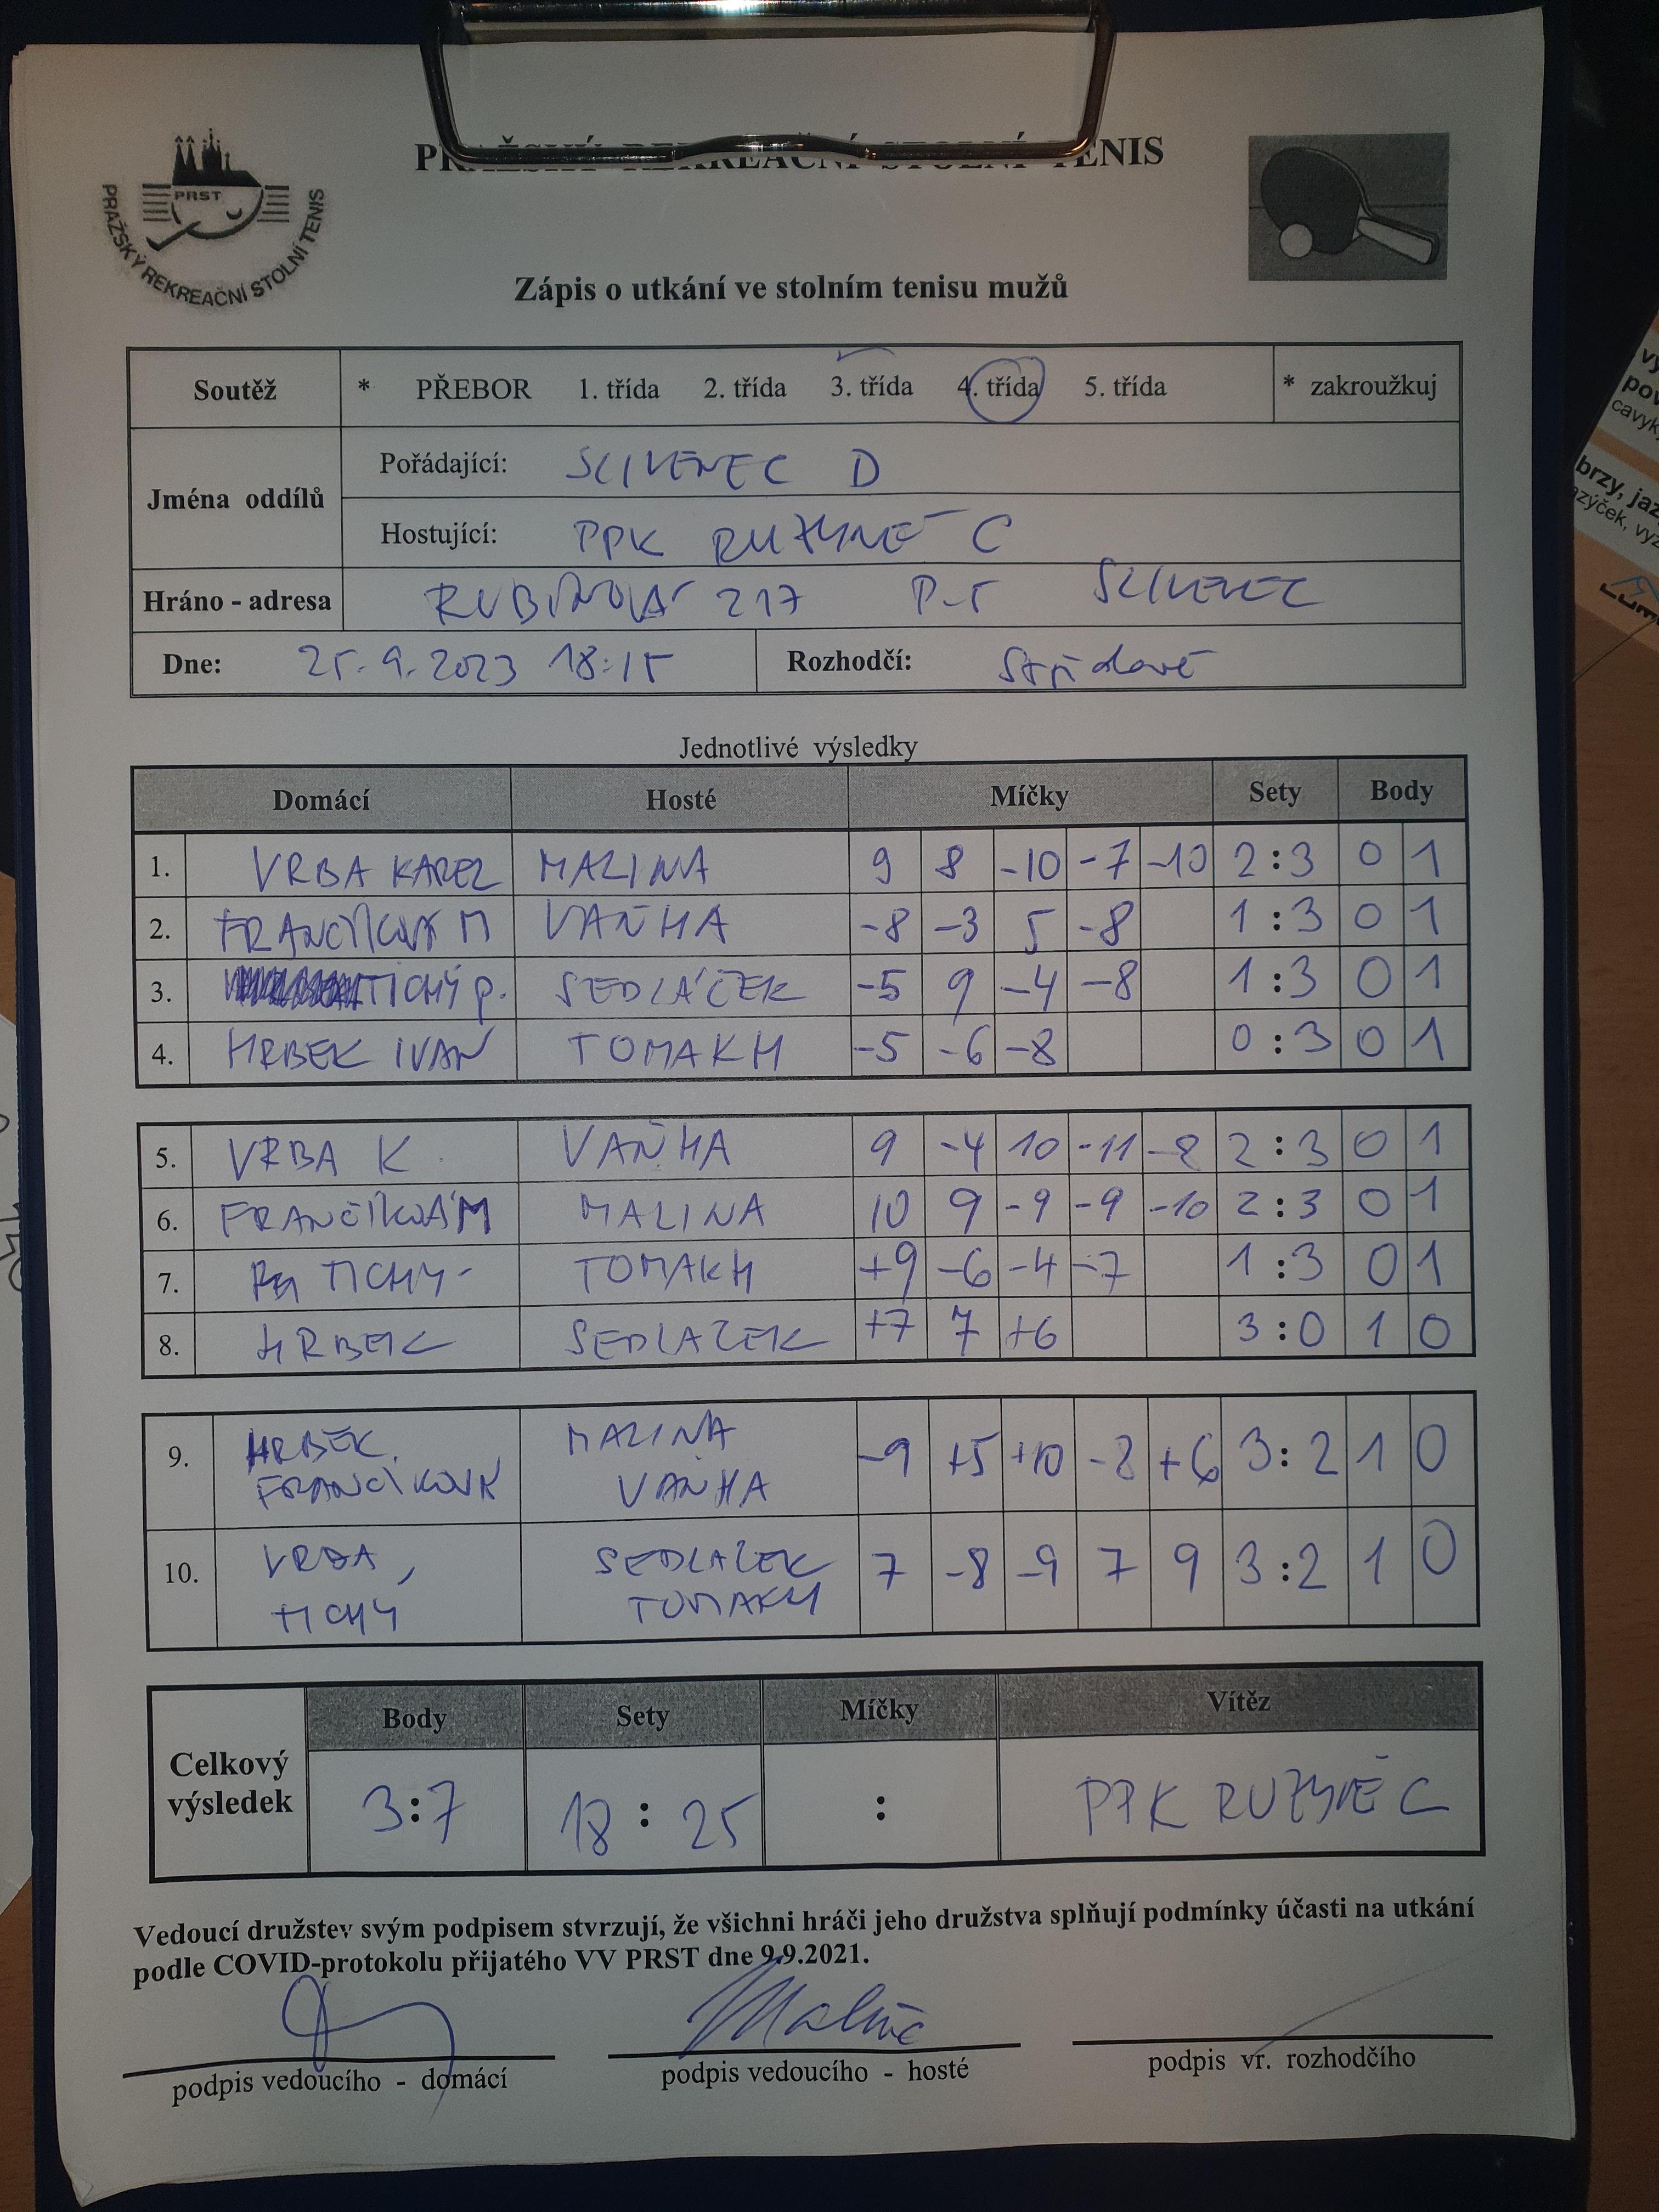 PRAŽSKÝ REKREAČNÍ STOLNÍ TENIS
PRST
PRAŽSKÝ REKREAČNÍ STOLNÍ TENIS
Zápis o utkání ve stolním tenisu mužů
Soutěž * PŘEBOR 1. třída 2. třída 3. třída 4. třída 5. třída * zakroužkuj
Jména oddílů
Pořádající: SLIVENEC D
Hostující: PPK RUZYNĚ C
Hráno - adresa RUBÍNOVÁ 217 P-5 SLIVENEC
Dne: 25.9.2023 18:15 Rozhodčí: Střídavě
Jednotlivé výsledky
Domácí Hosté Míčky Sety Body
1. VRBA KAREL MALINA 9 8 -10 -7 -10 2:3 0 1
2. FRANČÍKOVÁ M VAŇHA -8 -3 5 -8 1:3 0 1
3. TICHÝ P. SEDLÁČEK -5 9 -4 -8 1:3 0 1
4. HRBEK IVAN TOMAKH -5 -6 -8 0:3 0 1
5. VRBA K. VAŇHA 9 -4 10 -11 -8 2:3 0 1
6. FRANČÍKOVÁ M MALINA 10 9 -9 -9 -10 2:3 0 1
7. TICHÝ TOMAKH +9 -6 -4 -7 1:3 0 1
8. HRBEK SEDLAČEK +7 7 +6 3:0 1 0
9. HRBEK, MALINA -9 +5 +10 -8 +6 3:2 1 0
FRANČÍKOVÁ VAŇHA
10. VRBA, SEDLAČEK 7 -8 -9 7 9 3:2 1 0
TICHÝ TOMAKH
Body Sety Míčky Vítěz
Celkový výsledek 3:7 18:25 : PPK RUZYNĚ C
Vedoucí družstev svým podpisem stvrzují, že všichni hráči jeho družstva splňují podmínky účasti na utkání
podle COVID-protokolu přijatého VV PRST dne 9.9.2021.
Malina
podpis vedoucího - domácí podpis vedoucího - hosté podpis vr. rozhodčího
brzy, jaz